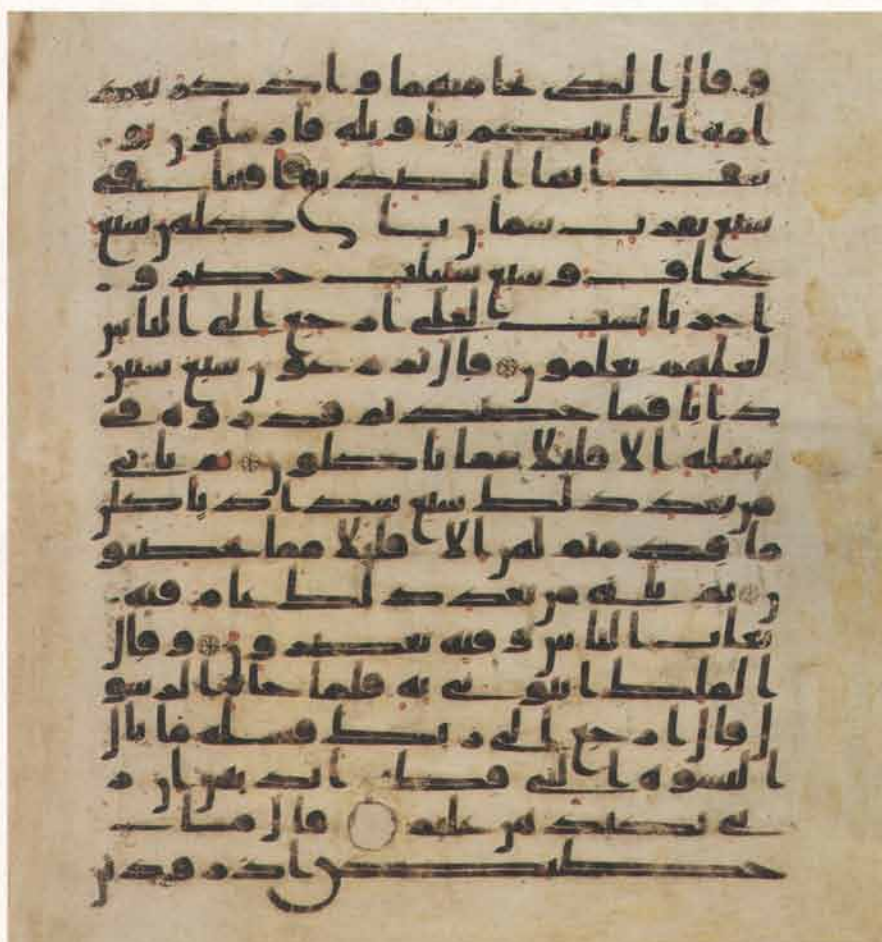 و قال الذى نجا منهما و ادكر بعد
امة انا انبيكم بتاويله فارسلون يو
سف ايها الصديق افتنا فى
سبع بقرت سمان ياكلهن سبع
عجاف و سبع سنبلت خضر و
اخر يابست لعلى ارجع الى الناس
لعلهم يعلمون قال تزرعون سبع سنين
دابا فما حصدتم فذروه فى
سنبله الا قليلا مما تاكلون ثم ياتى
من بعد ذلك سبع شداد ياكلن
ما قدمتم لهن الا قليلا مما تحصنو
ن ثم ياتى من بعد ذلك عام فيه
يغاث الناس و فيه يعصرون و قال
الملك ايتونى به فلما جاه الرسو
ل قال ارجع الى ربك فسله ما بال
النسوة التى قطعن ايديهن ان ر
بى بكيدهن عليم قال ما
خطبكن اذ رودتن